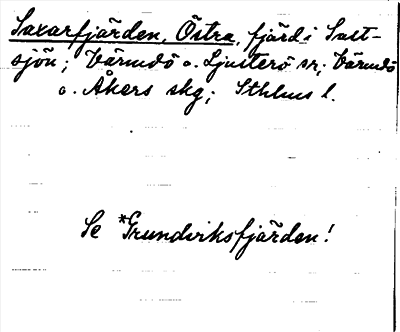 Saxarfjärden, Östra, fjärd i Salt-
sjön; Värmdö o. Ljusterö sr; Värmdö
o. Åkers skg; Sthlms l.
Se *Grundviksfjärden!